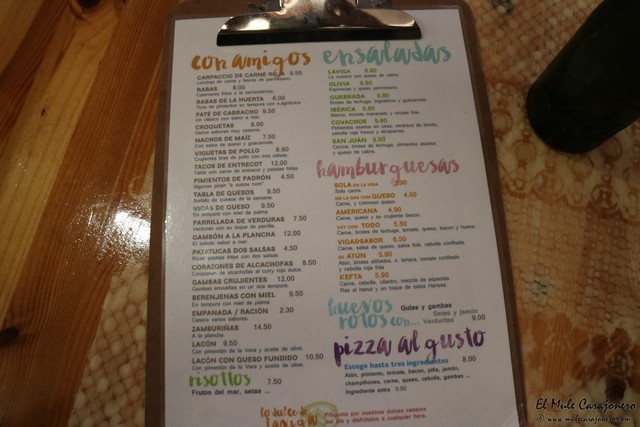 con amigos
CARPACCIO DE CARNE ROJA 9.50
Lonchas de carne y lascas de parmesano.
RABAS 8.00
Calamares fritos a la santanderina.
RABAS DE LA HUERTA 6.00
Tiras de pimientos en tempura con
PATÉ DE CABRACHO 9.50
Un clásico con sabor a mar.
CROQUETAS 8.00
Varios sabores muy caseros.
NACHOS DE MAÍZ 7.50
Con salsa de queso y guacamole.
VIGUETAS DE POLLO 8.90
Crujientes tiras de pollo con tres salsas.
TACOS DE ENTRECOT 12.00
Tabla con carne de entrecot y patatas fritas.
PIMIENTOS DE PADRÓN 4.50
Algunos pican "e outros non"
TABLA DE QUESOS 9.50
Sortido de quesos de la semana.
VIGAS DE QUESO 9.50
En tempura con miel de palma
PARRILLADA DE VERDURAS 7.50
Verduras con su toque de parrilla.
GAMBÓN A LA PLANCHA 12.00
El salado sabor a mar.
PATATUCAS DOS SALSAS 4.50
Ricas patatas fritas con dos salsas
CORAZONES DE ALCACHOFAS 8.50
Corazones de alcachofas al curry rojo dulce.
GAMBAS CRUJIENTES 12.00
Gambas envueltas en un rica tempura.
BERENJENAS CON MIEL 9.50
En tempura con miel de palma
EMPANADA / RACIÓN 2.30
Casera varios sabores.
ZAMBURIÑAS 14.50
A la plancha.
LACÓN 9.50
Con pimentón de la Vera y aceite de oliva.
LACÓN CON QUESO FUNDIDO 10.50
Con pimentón de la Vera y aceite de oliva.
risottos 7.50
Frutos del mar, setas ...
ensaladas
LAVIGA 9.80
La nuestra con queso de cabra.
OLIVIA 9.80
Espinacas y queso parmesano.
QUEBRADA 9.80
Brotes de lechuga, langostinos y guacamole.
IBÉRICA 9.80
Jamón, tomate macerado y mozza fior.
COVACHOS 9.80
Pimientos asados en casa, ventresca de bonito,
cebolla roja fresca y alcaparras.
SAN JUAN 9.80
Brotes de lechuga, pimientos asados
y queso de cabra.
hamburguesas
SOLA EN LA VIDA 3.90
Solo carne.
ME LA DAS CON QUESO 4.50
Carne, y cremoso queso.
AMERICANA 4.90
Carne, queso y su crujiente bacon.
VOY CON TODO 5.50
Carne, brotes de lechuga, tomate, queso, bacon y huevo.
VIGADSABOR 6.50
Carne, salsa de queso, salsa foie, cebolla confitada.
DE ATÚN 5.90
Atún, brotes aliñados, s. tártara, tomate confitado
y cebolla roja frita
KEFTA 5.90
Carne, cebolla, cilantro, mezcla de especias
Ras al hanut y un toque de salsa Harissa.
huevos
rotos con...
Gulas y gambas
Setas y jamón
Verduritas 9.00
pizza al gusto
Escoge hasta tres ingredientes 8.00
Atún, pimiento, tomate, bacon, piña, jamón,
champiñones, carne, queso, cebolla, gambas ...
Ingrediente extra 0.50
lo dulce de
laviga
Pregunta por nuestros dulces caseros
del día y disfrútalos a cualquier hora.
El Mule Carajonero
www.mulecarajonero.com